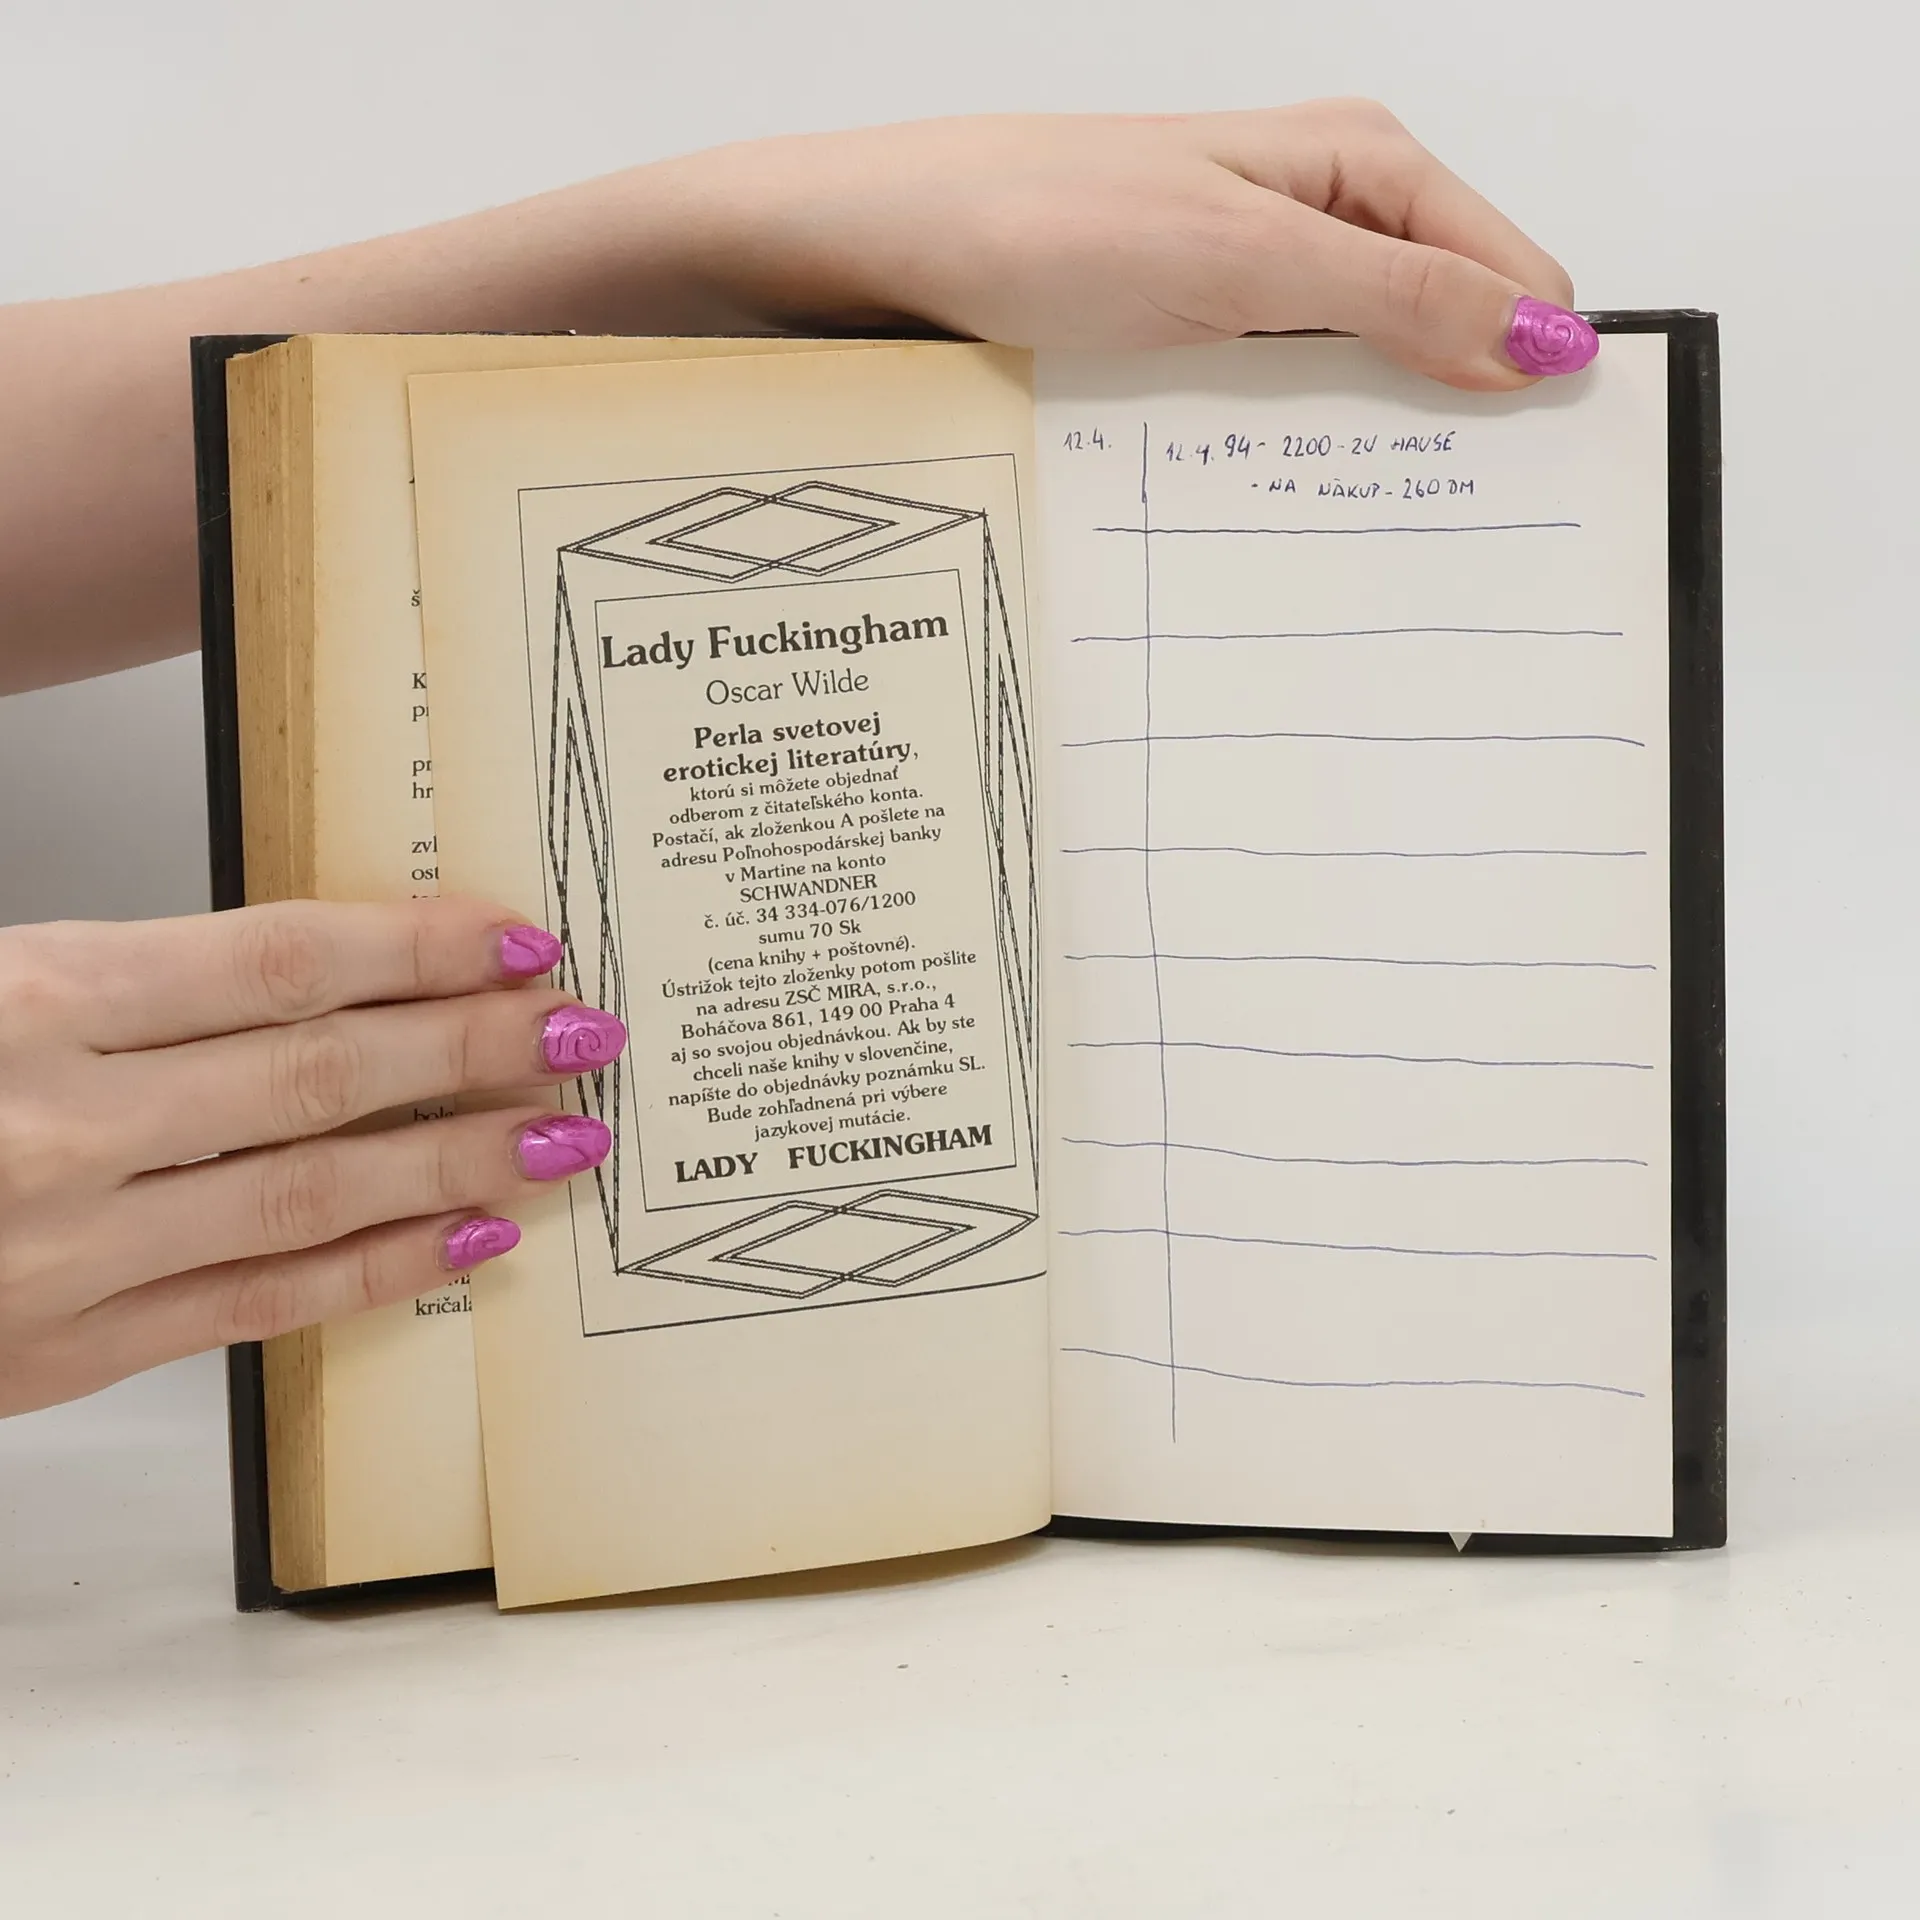 š
K
pr
hr
zvl
ost
kričala
Lady Fuckingham
Oscar Wilde
Perla svetovej
erotickej literatúry,
ktorú si môžete objednať
odberom z čitateľského konta.
Postačí, ak zloženkou A pošlete na
adresu Poľnohospodárskej banky
v Martine na konto
SCHWANDNER
č. úč. 34 334-076/1200
sumu 70 Sk
(cena knihy + poštovné).
Ústrižok tejto zloženky potom pošlite
na adresu ZSČ MIRA, s.r.o.,
Boháčova 861, 149 00 Praha 4
aj so svojou objednávkou. Ak by ste
chceli naše knihy v slovenčine,
napíšte do objednávky poznámku SL.
Bude zohľadnená pri výbere
jazykovej mutácie.
LADY FUCKINGHAM
12.4. 12.4. 94 - 2200 - ZU HAUSE
- NA NÁKUP - 260 DM